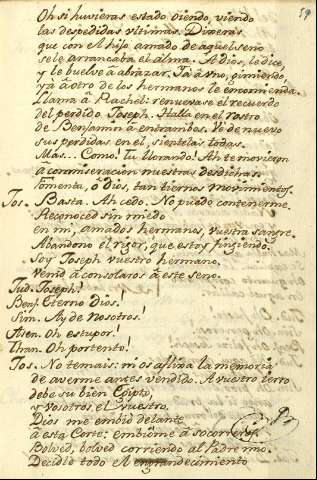 59
Oh si huvieras estado viendo, viendo
las despedidas ultimas. Dixeras
que con el hijo amado de aquel seno
se le arrancaba el alma. A Dios, le dice,
y le buelve a abrazar. Yà à uno, gimiendo,
yà à otro de los hermanos le encomienda.
Llama à Rachel: renuevase el recuerdo
del perdido Joseph. Halla en el rostro
de Benjamin à entrambos. Vè de nuevo
sus perdidas en el, sientelas todas.
Mas... Como! Tu llorando! Ah te movieran
a conmiseracion nuestras desdichas.
Fomenta, ò Dios, tan tiernos movimientos.
Jos. Basta. Ah cedo. No puedo contenerme.
Reconoced sin miedo
en mi, amados hermanos, vuestra sangre.
Abandono el rigor, que estoy fingiendo.
Soy Joseph vuestro hermano.
Venid à consolaros à este seno.
Jud. Joseph!
Benj. Eterno Dios!
Sim. Ay de nosotros!
Asen. Oh estupor!
Than. Oh portento!
Jos. No temais: ni os aflija la memoria
de averme antes vendido. A vuestro ierro
debe su bien Egipto,
y vosotros el vuestro.
Dios me embiò delante
à esta Corte: embiòme à socorreros.
Bolved, bolved corriendo al Padre mio.
Decidle todo el engrandecimiento